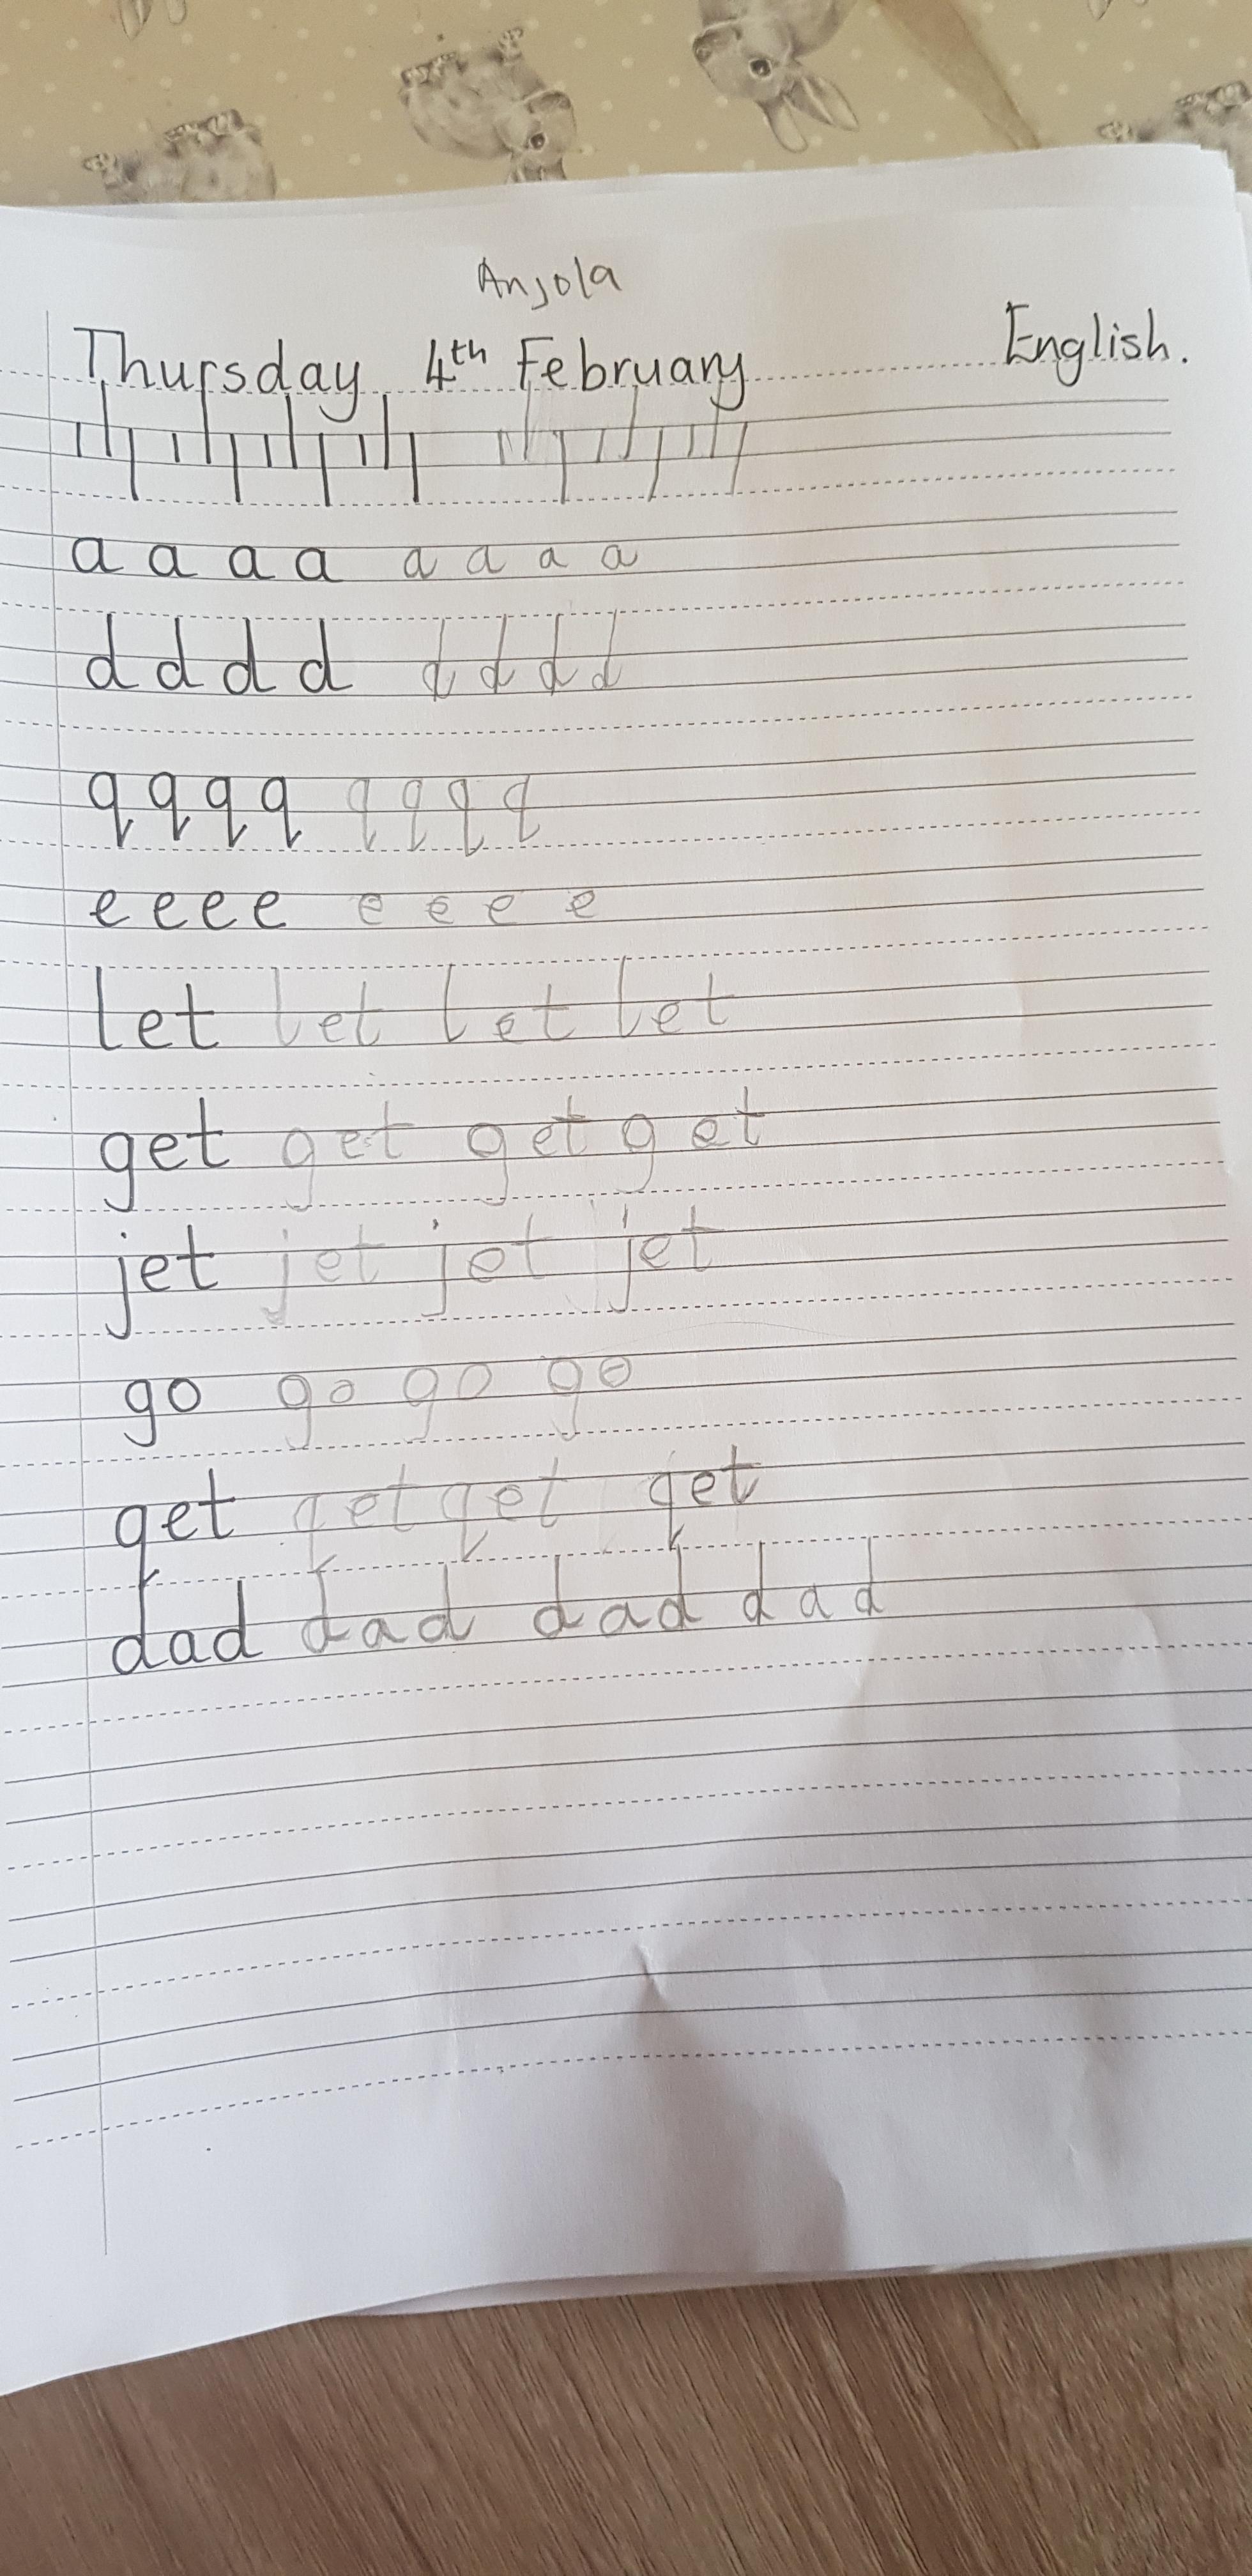 Anjola
Thursday 4th February English.
a a a a a a a a
d d d d d d d d
q q q q q q q q
e e e e e e e e
let let let let
get get get get
jet jet jet jet
go go go go
qet qet qet qet
dad dad dad dad